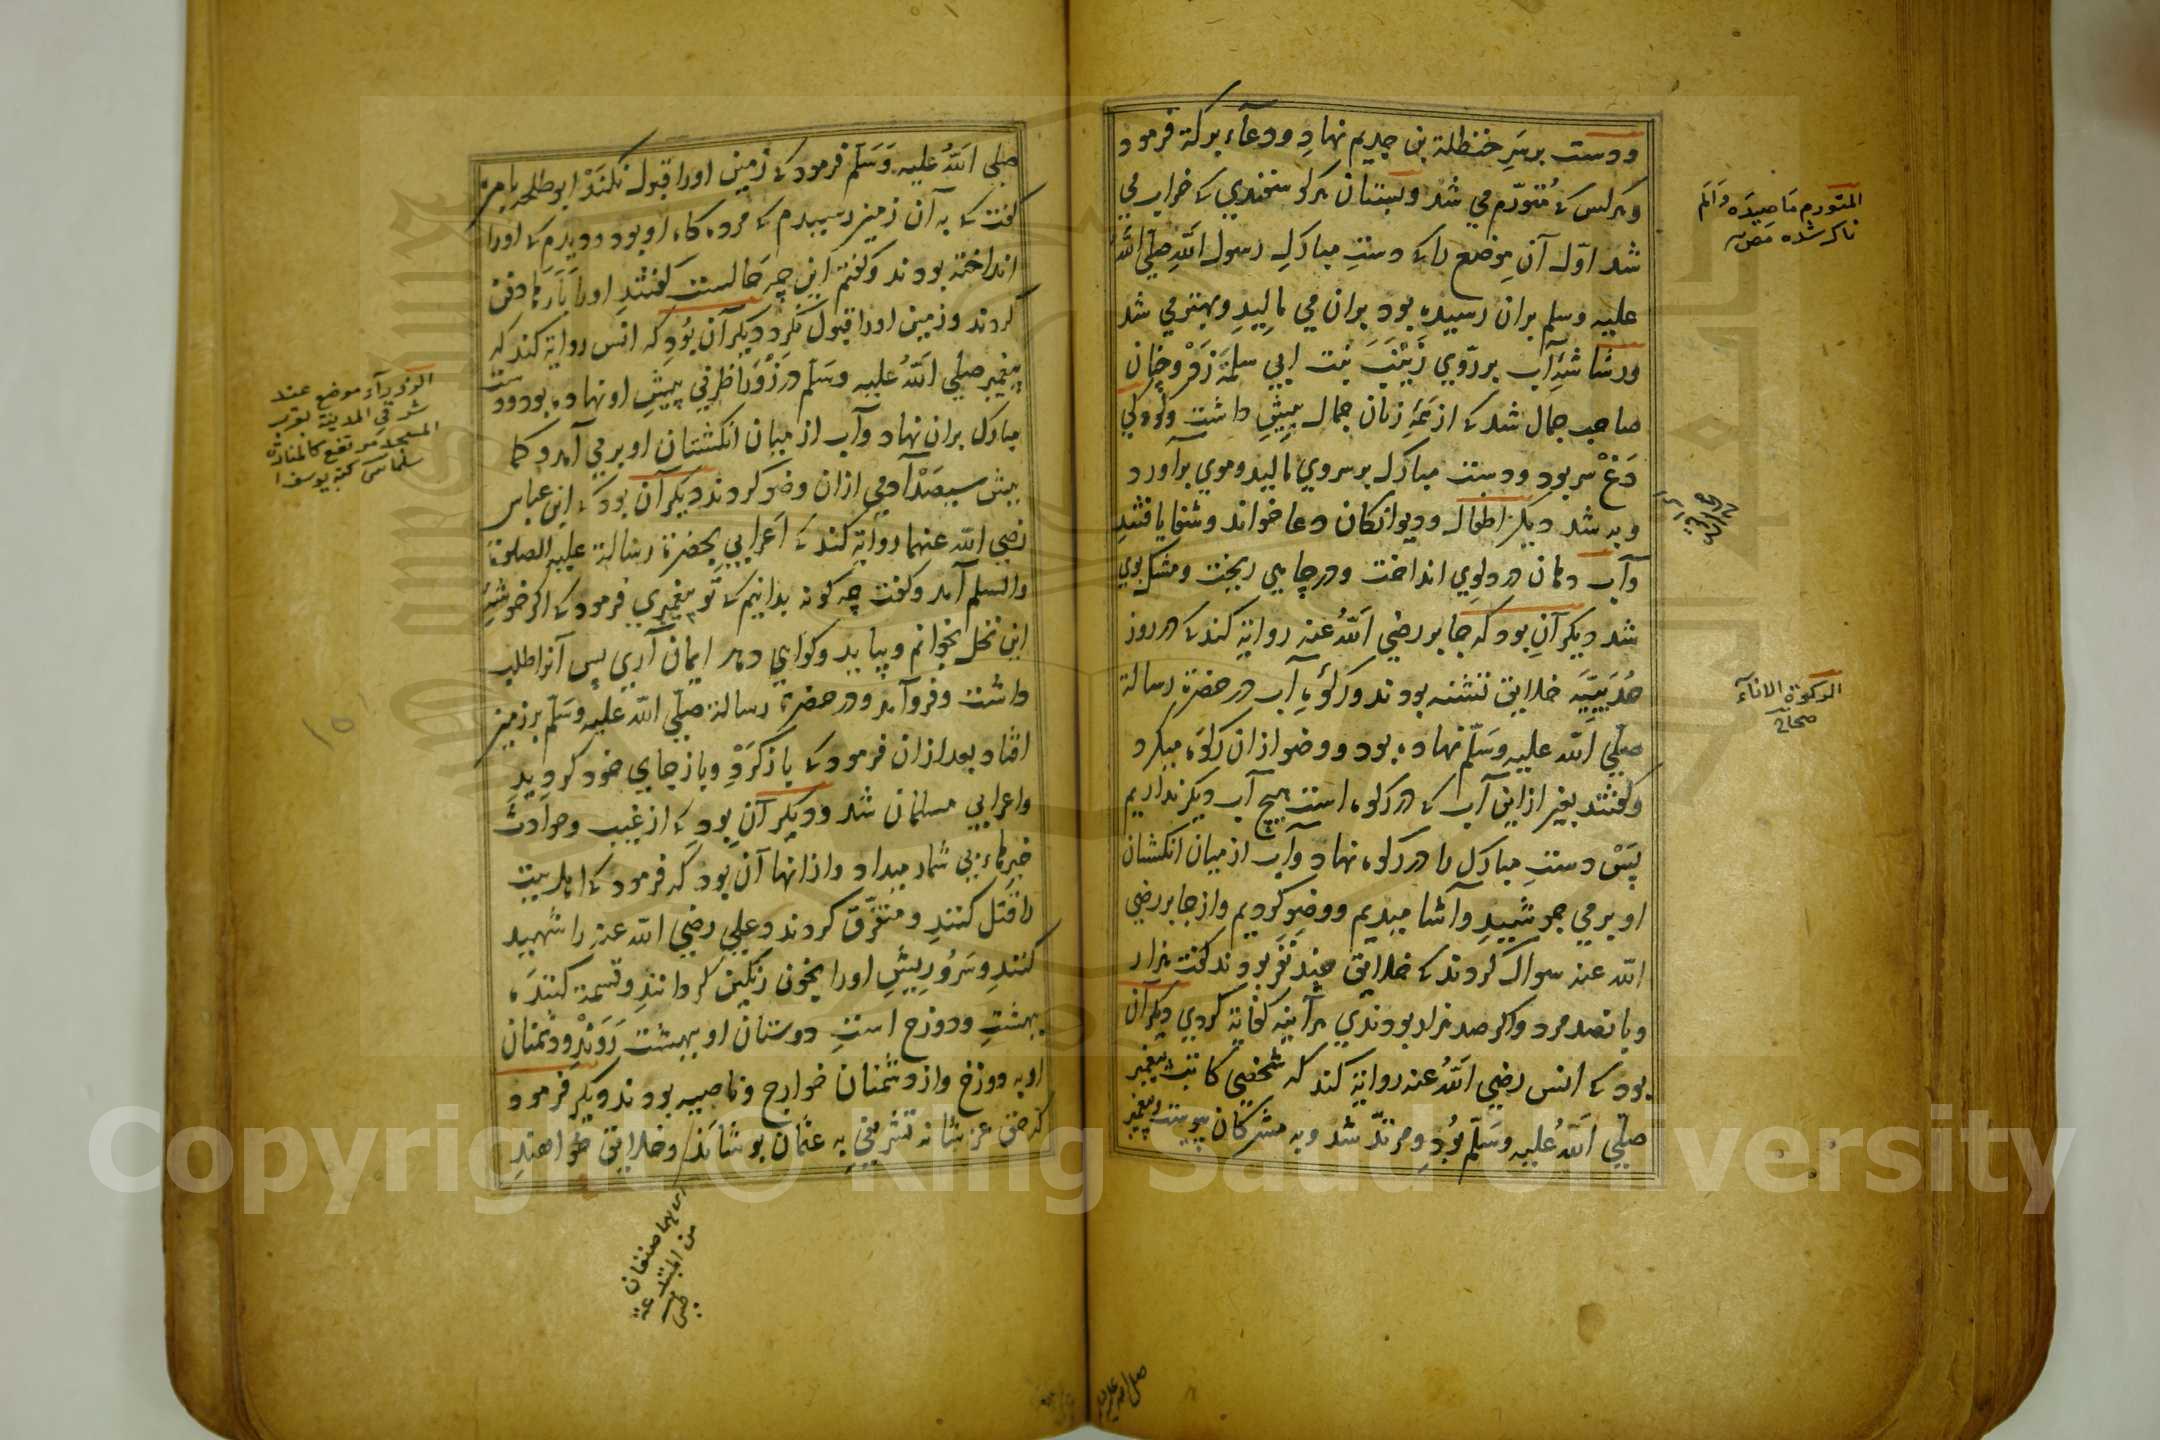 ودست برسر حنظلة بن جديم نهاد ودعاء بركة فرمود
وهركس كه متورم مي شد وبستان هر كوسفندي كه خراب مي
شد اول آن موضع را كه دست مبارك رسول الله صلي الله
عليه وسلم بران رسيده بود بران مي ماليد وبهتر مي شد
ورشاشه آب برروي زينب بنت ابي سلمة زد وچنان
صاحب جمال شد كه از همه زنان جمال بيش داشت وكودكي
دغ سر بود ودست مبارك برسروي ماليد وموي برآورد
وبه شد ديكر اطفال وديوانكان دعا خواند وشفا يافتند
وآب دهان در دلوي انداخت ودرچاهي ريخت ومشك بوي
شد ديكر آن بود كه جابر رضي الله عنه رواية كند كه در روز
حديبيه خلايق تشنه بودند وركوه آب در حضرة رسالة
صلي الله عليه وسلم نهاده بود ووضو ازان ركوه ميكرد
وكفتند بغير ازاين آب كه در ركوه است هيچ آب ديكر نداريم
پس دست مبارك را در ركوه نهاد وآب از ميان انكشتان
او برمي جوشيد وآشاميديم ووضو كرديم واز جابر رضي
الله عنه سوال كردند كه خلايق چند نفر بودند كفت هزار
وپانصد مرد واكر صد هزار بودندي هرآينه كفاية كردي ديكر آن
بود كه انس رضي الله عنه رواية كند كه شخصي كاتب پيغمبر
صلي الله عليه وسلم بود ومرتد شد وبه مشركان پيوست وپيغمبر
المتورم ما صيده والم
ناك شده
الركوة الاناء
صحاح
صلي الله عليه وسلم فرمود كه زمين اورا قبول نكند ابوطلحه با من
كفت كه به آن زمين رسيدم كه مرده كاه او بود وديدم كه اورا
انداخته بودند وكفتم اين چه حالست كفتند اورا بارها دفن
كردند وزمين اورا قبول نكرد ديكر آن بود كه انس رواية كند كه
پيغمبر صلي الله عليه وسلم در زورا ظرفي پيش او نهاده بود ودست
مبارك بران نهاد وآب از ميان انكشتان او برمي آمد وكما
بيش سيصد آدمي ازان وضو كردند ديكر آن بود كه ابن عباس
رضي الله عنهما رواية كند كه اعرابيي بحضرة رسالة عليه الصلوة
والسلم آمد وكفت چه كونه بدانيم كه تو پيغمبري فرمود كه اكر خوشه
اين نخل بخوانم وبيايد وكواهي دهد ايمان آري پس آنرا طلب
داشت وفروآمد ودر حضرة رسالة صلي الله عليه وسلم برزمين
افتاد بعد ازان فرمود كه بازكرد وباز جاي خود كرديد
واعرابي مسلمان شد وديكر آن بود كه از غيب وحوادث
خبرهاء بي شمار ميداد وازانها آن بود كه فرمود كه اهل بيت
را قتل كنند ومتفرق كردند وعلي رضي الله عنه را شهيد
كنند وسر وريش اورا بخون رنكين كردانند وقسمة كننده
بهشت ودوزخ است دوستان او ببهشت روند ودشمنان
او به دوزخ واز دشمنان خوارج وناصبيه بودند وديكر فرمود
كه حق عز شانه تشريفي به عثمان پوشاند وخلايق خواهند
الزوراء موضع عند
شرقي المدينة لقرب
المسجد مرتفع كالمنارة
كتبه يوسف
اي هما صنفان
من المبتدعة
صلي الله عليه
Copyright © King Saud University